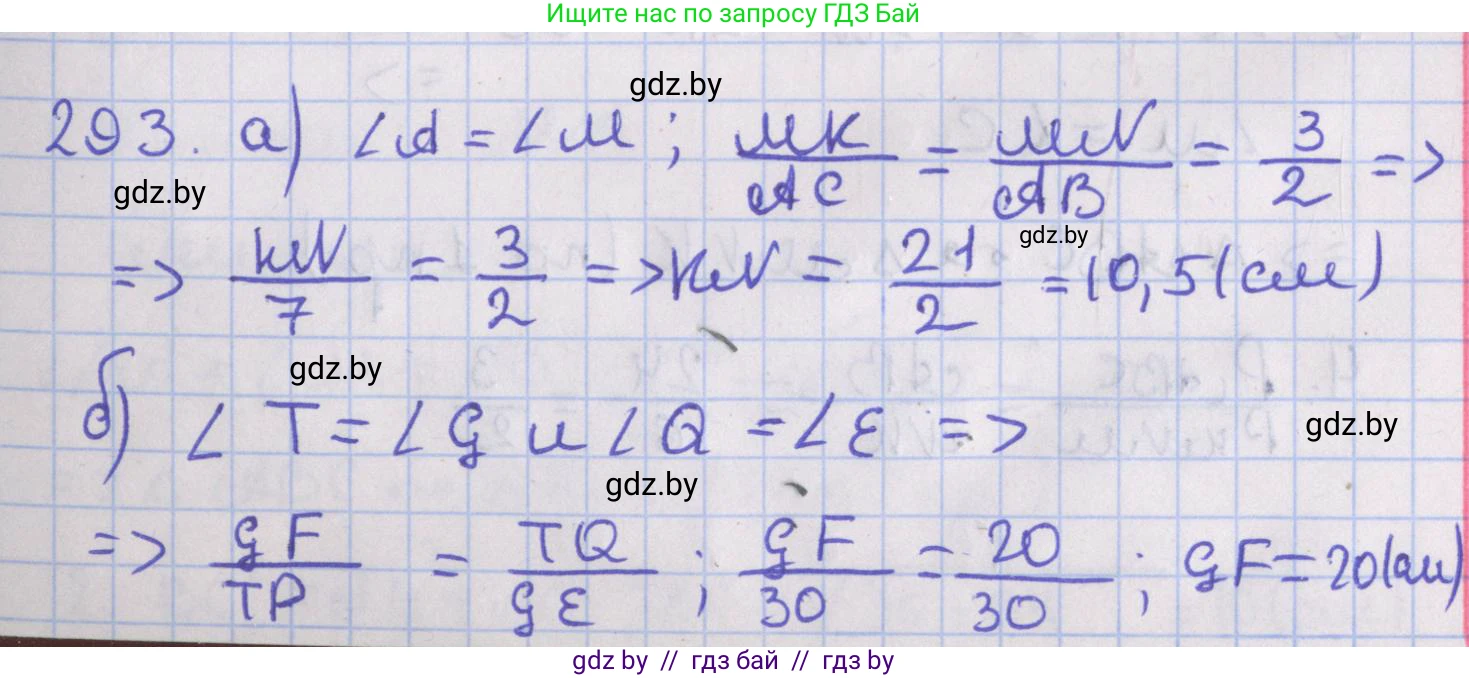 Ищите нас по запросу ГДЗ Бай
gdz.by
293. а) ∠A = ∠M ; MK/AC = MN/AB = 3/2 =>
gdz.by
gdz.by
=> KN/7 = 3/2 => KN = 21/2 = 10,5 (см)
gdz.by
б) ∠T = ∠G и ∠Q = ∠E =>
gdz.by
gdz.by
=> GF/TP = TQ/GE ; GF/30 = 20/30 ; GF = 20 (см)
gdz by // гдз бай // гдз by